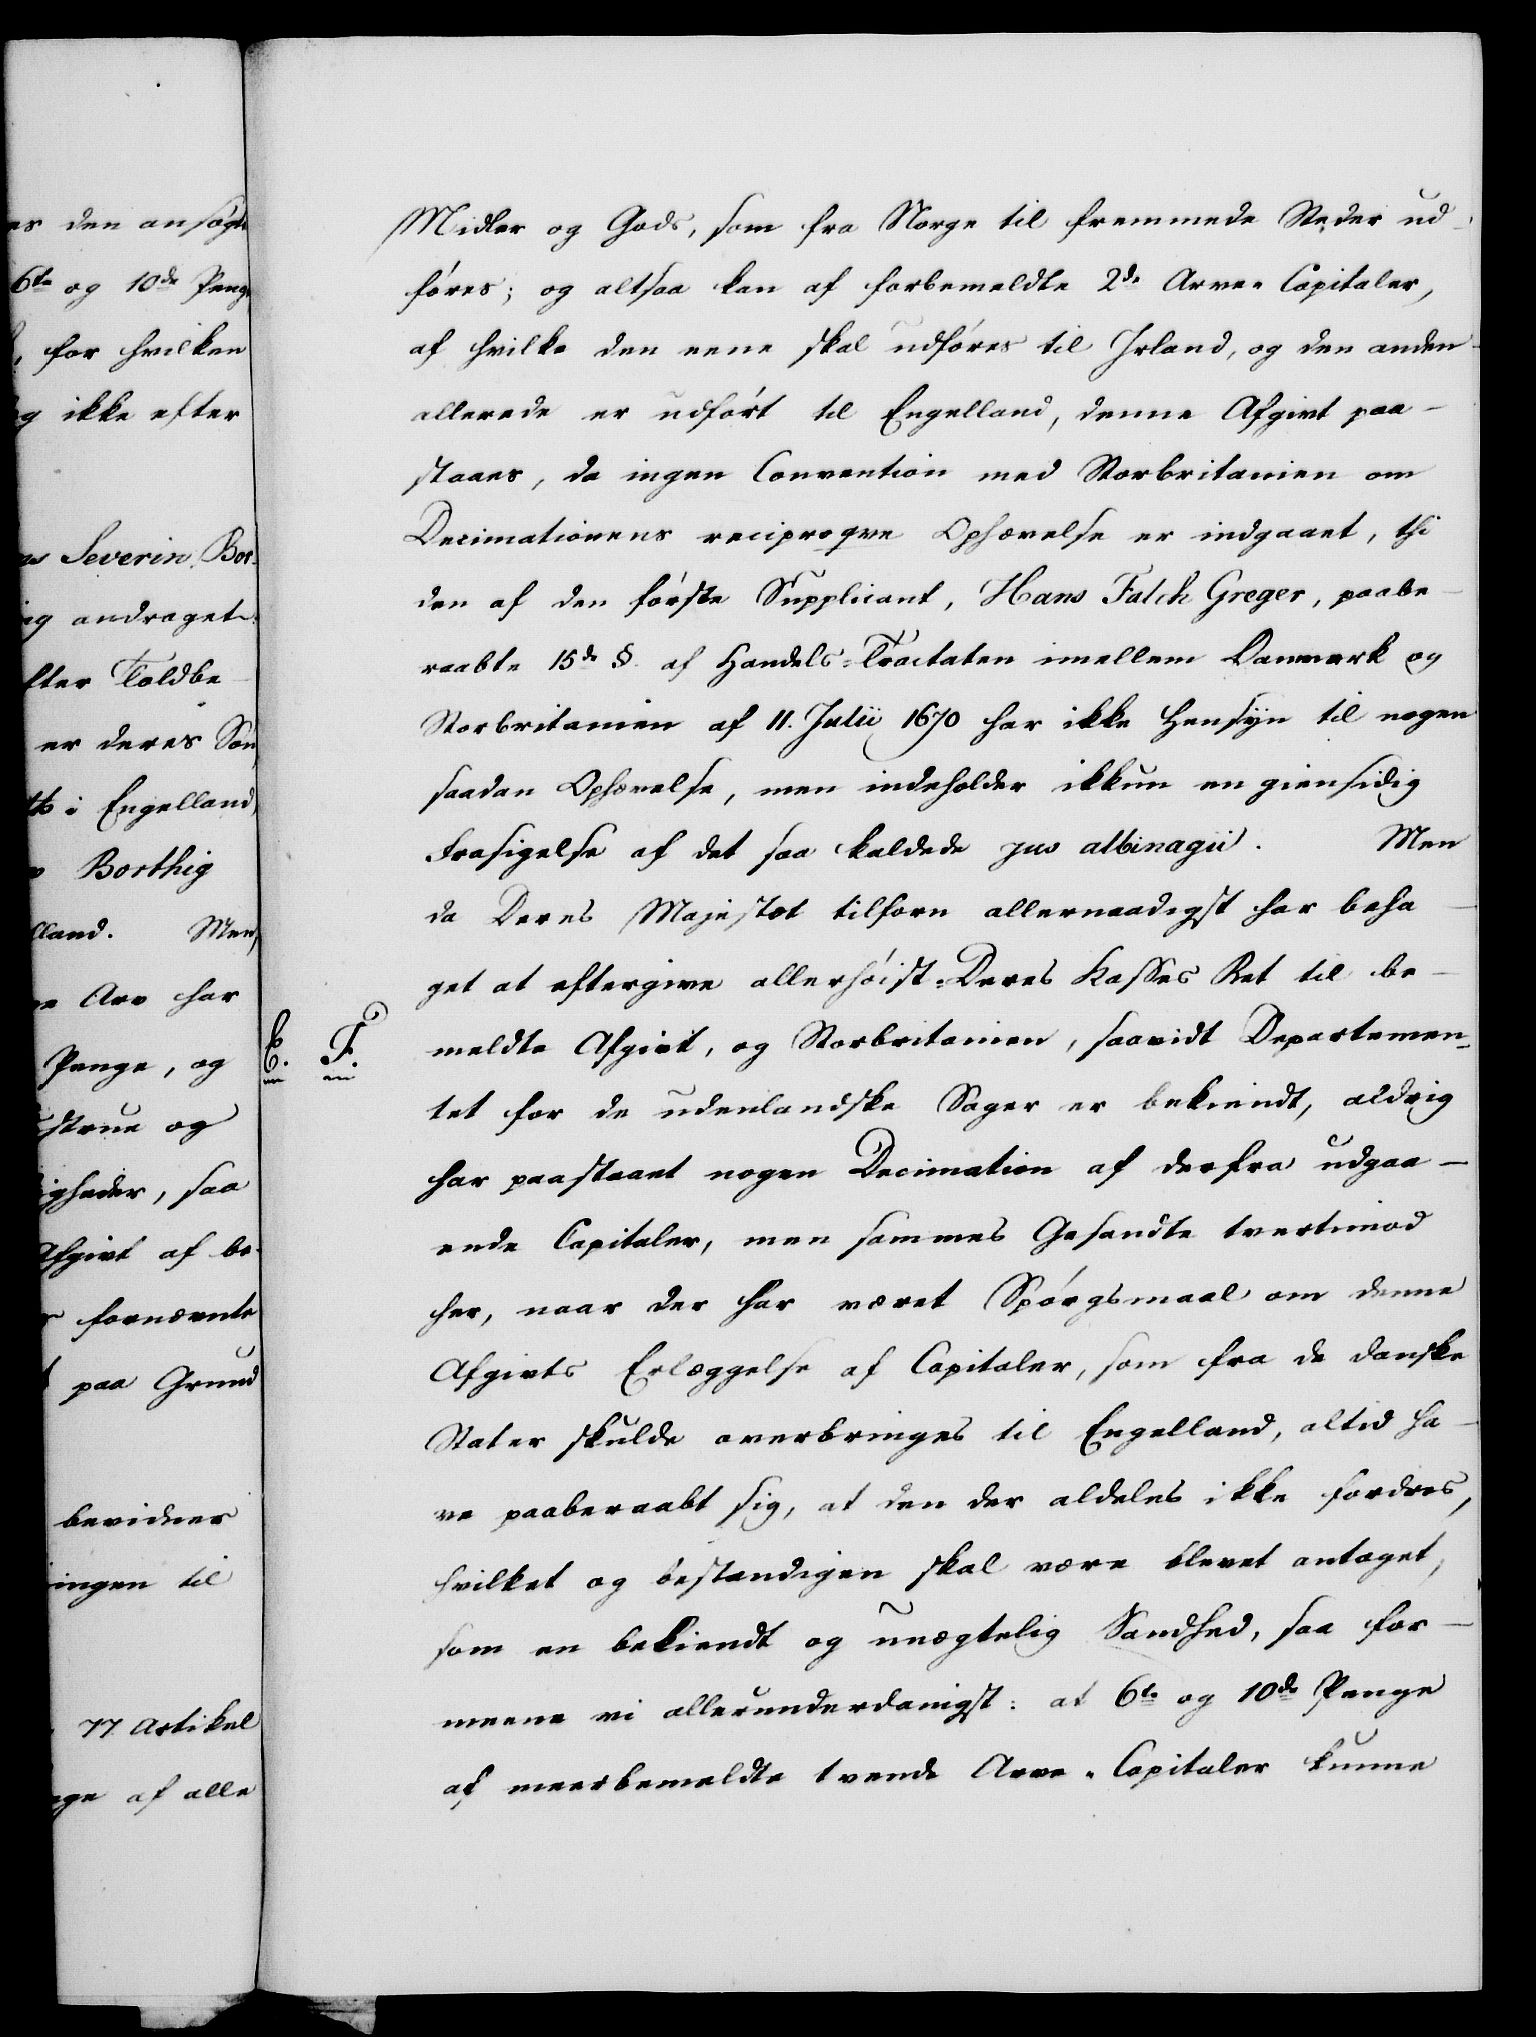 es den ansøgte
6te og 10de Penge
, for hvilken
og ikke efter
Severin Bor-
ig andraget
fter Toldbe-
er deres Søn
i Engelland,
Borthig
lland. Men,
Arv har
Penge, og
strue og
igheder, saa
Afgivt af be-
fornævnte
paa Grund
bevidner
ingen til
77 Artikel
nge af alle
Midler og Gods, som fra Norge til fremmede Steder ud-
føres; og altsaa kan af forbemeldte 2de Arve-Capitaler,
af hvilke den eene skal udføres til Irland, og den anden
allerede er udført til Engelland, denne Afgivt paa-
staaes, da ingen Convention med Storbritanien om
Decimationens reciproqve Ophævelse er indgaaet, thi
den af den første Supplicant, Hans Falck Greger, paabe-
raabte 15de §. af Handels-Tractaten imellem Danmark og
Storbritanien af 11. Julii 1670 har ikke Hensyn til nogen
saadan Ophævelse, men indeholder ikkun en giensidig
Frasigelse af det saa kaldede jus albinagii. Men
da Deres Majestæt tilforn allernaadigst har beha-
get at eftergive allerhøist-Deres Kasses Ret til be-
E. F.
meldte Afgivt, og Storbritanien, saavidt Departemen-
tet for de udenlandske Sager er bekiendt, aldrig
har paastaaet nogen Decimation af derfra udgaa-
ende Capitaler, men sammes Gesandte tvertimod
her, naar der har været Spørgsmaal om denne
Afgivts Erlæggelse af Capitaler, som fra de danske
Stater skulde overbringes til Engelland, altid ha-
ve paaberaabt sig, at den der aldeles ikke fordres,
hvilket og bestandigen skal være blevet antaget,
som en bekiendt og unægtelig Sandhed, saa for-
meene vi allerunderdanigst: at 6te og 10de Penge
af meerbemeldte tvende Arve-Capitaler kunne